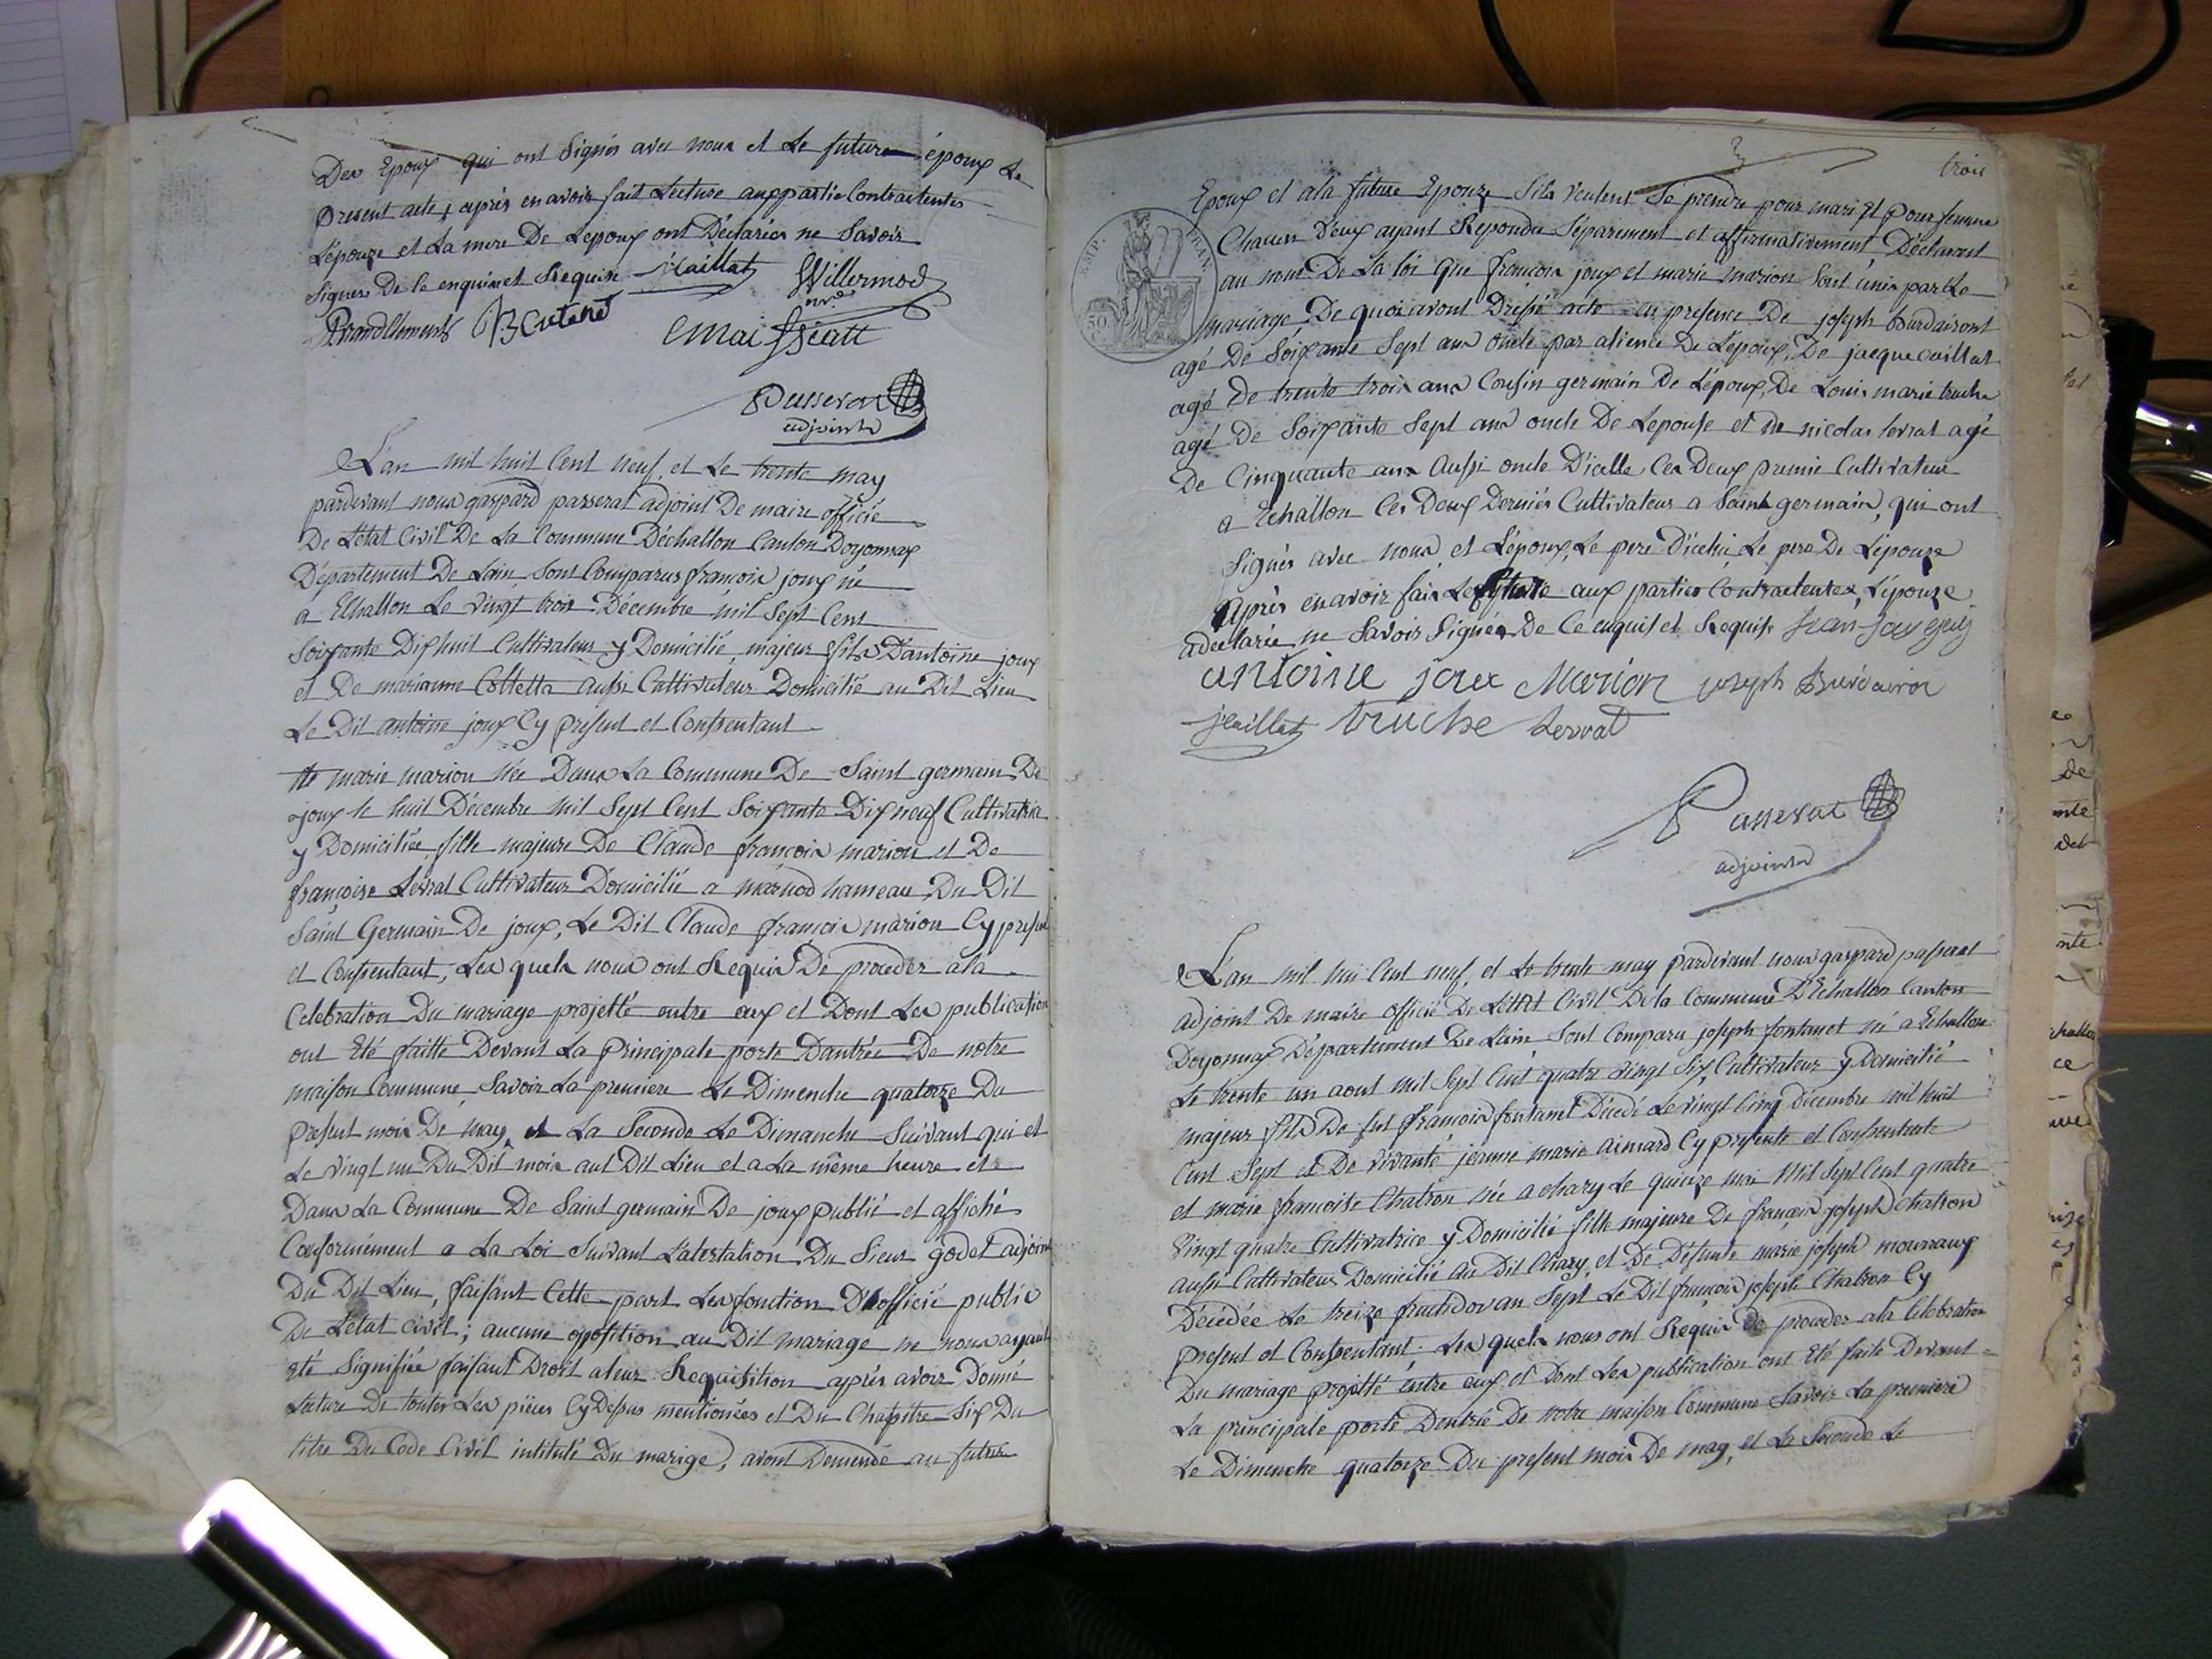 Des Epoux qui ont Signés avec nous et Le future époux Le
present acte, après en avoir fait Lecture aux partie Contractentes
Lépouze et La mere De Lepoux ont Déclarées ne Savoir
Signer De le enquis et Requise Maillat Willermoz
B
Passerat
adjoint
L'an mil huit Cent neuf, et Le trente may
pardevant nous gaspard passerat adjoint De maire officié
De L'état Civil De La Commune Déchallon Canton Doyonnax
Département De Lain, Sont Comparus françois joux né
a Echallon Le vingt trois Décembre mil Sept Cent
Soixante Dixhuit Cultivateur y Domicilié, majeur fils D'antoine joux
et De marianne Colletta aussi Cultivateur Domicilié au Dit Lieu
Le Dit antoine joux Cy present et Consentant
et marie marion née Dans La Commune De Saint germain De
joux le huit Décembre mil Sept Cent Soixante Dixneuf Cultivatrice
y Domiciliée, fille majeure De Claude françois marion et De
françoise Levrat Cultivateur Domicilié a marnod hameau Du Dit
Saint Germain De joux, Le Dit Claude françois marion Cy present
et Consentant; Les quels nous ont Requis De proceder a la
Celebration Du mariage projetté entre eux et Dont Les publication
ont Eté faitte Devant La Principale porte Dantrée De notre
maison Commune, Savoir La premiere Le Dimenche quatorze Du
present mois De may, et La Seconde Le Dimanche Suivant qui et
Le vingt un Du Dit mois aut Dit Lieu et a La même heure et
Dans La Commune De Saint germain De joux publié et affiché
Conformément a La Loi Suivant L'atestation Du Sieur godet adjoint
Du Dit Lieu, faisant Cette part Les fonction D'officié public
De L'état Civil; aucune opposition au Dit mariage ne nous ayant
été Signifiée faisant Droit a leur Requisition après avoir Donné
Lecture De toutes Les pièces Cy Dessus mentionées et Du Chapitre Six Du
titre Du Code Civil intitulé Du marige, avont Demendé au futur
trois
Epoux et a la future Epouze Sils veulent Se prendre pour mari Et pour femme
Chacun Deux ayant Repondu Séparement et affirmativement, Déclarant
au nom De La loi que françois joux et marie marion Sont unis par Le
EMP. FRAN.
50
mariage, De quoi avont Dressé acte en presence De joseph Burdairont
agé De Soixante Sept ans oncle par alience De Lepoux, De jacque caillat
agé De trente trois ans Cousin germain De Lépoux, De Louis marie truche
agé De Soixante Sept ans oncle De Lepouse et De nicolas levrat agé
De Cinquante ans Aussi oncle D'icelle, Ces Deux premie Cultivateur
a Echallon Ces Deux Derniés Cultivateur a Saint germain, qui ont
Signés avec nous et Lépoux, Le pere D'icelui, Le pere De Lépouze
Après en avoir fais Lecture aux parties Contractentes, Lépouze
a déclarée ne Savoir Signér De Ce enquis et Requise
antoine joux Marion joseph Burdairon
jcaillat truche Levrat
Passerat
adjoint
L'an mil hui Cent neuf, et Le trente may pardevant nous gaspard passerat
adjoint De maire officié De L'éttat Civil De la Commune D'Echallon Canton
Doyonnax Département De Lain Sont Comparu joseph fontanet né a Echallon
Le trente un aout mil Sept Cent quatre vingt Six, Cultivateur y Domicilié
majeur fils De fut françois fontanet Décédé Le vingt Cinq Décembre mil huit
Cent Sept et De vivante jeanne marie aimard Cy presente et Consentente
et marie francoise Chatron née a chary Le quinze mai Mil Sept Cent quatre
vingt quatre Cultivatrice y Domicilié fille majeure De françois joseph Chatron
aussi Cultivateur Domicilié au Dit Chary, et De Défunte marie joseph mourraux
Décédée Le treize fructidor an Sept Le Dit françois joseph Chatron Cy
present et Consentant; Les quels nous ont Requis de proceder a la Celebration
Du mariage projetté entre eux et Dont Les publication ont Eté faite Devant
La principale porte Dentrée De notre maison Commune Savoir La premiere
Le Dimenche quatorze Du present mois De may, et La Seconde Le